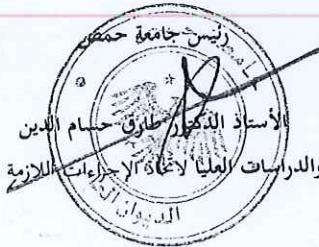 رئيس جامعة حمص
الأستاذ الدكتور طارق حسام الدين
والدراسات العليا لاتخاذ الإجراءات اللازمة